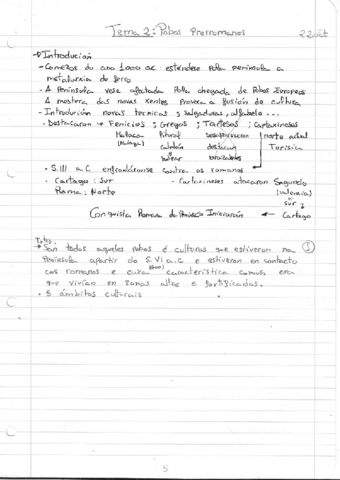 Tema 2: Pobos Prerromanos 22 oct
→ Introducion
- Comezos do ano 1000 aC esténdese pola península a
metalurxia do ferro
- A Península vese afectada pola chegada de Pobos Europeos
A mestura das novas xentes provoca a fusión de cultura
- Introdución novas tecnicas; salgaduras, alfabeto...
- Destacaron → Fenicios ; Gregos ; Tartesos ; Cartaxineses
Malaca litoral desapareceron norte actual
(Málaga) catalán destacan Tunisia
balear brazaletes
- S.III a.C enfrontáronse contra os romanos
- Cartago: Sur - Cartaxineses atacaron Sagunto
Roma: Norte (Valencia)
sur
Conquista Romana da Península ← Cartago
→ Son todos aqueles pobos e culturas que estiveron na
Península apartir do S. VI a.C e estiveron en contacto
cos romanos e cuxa característica común era
que vivían en zonas altas e fortificadas.
- 5 ámbitos culturais
5